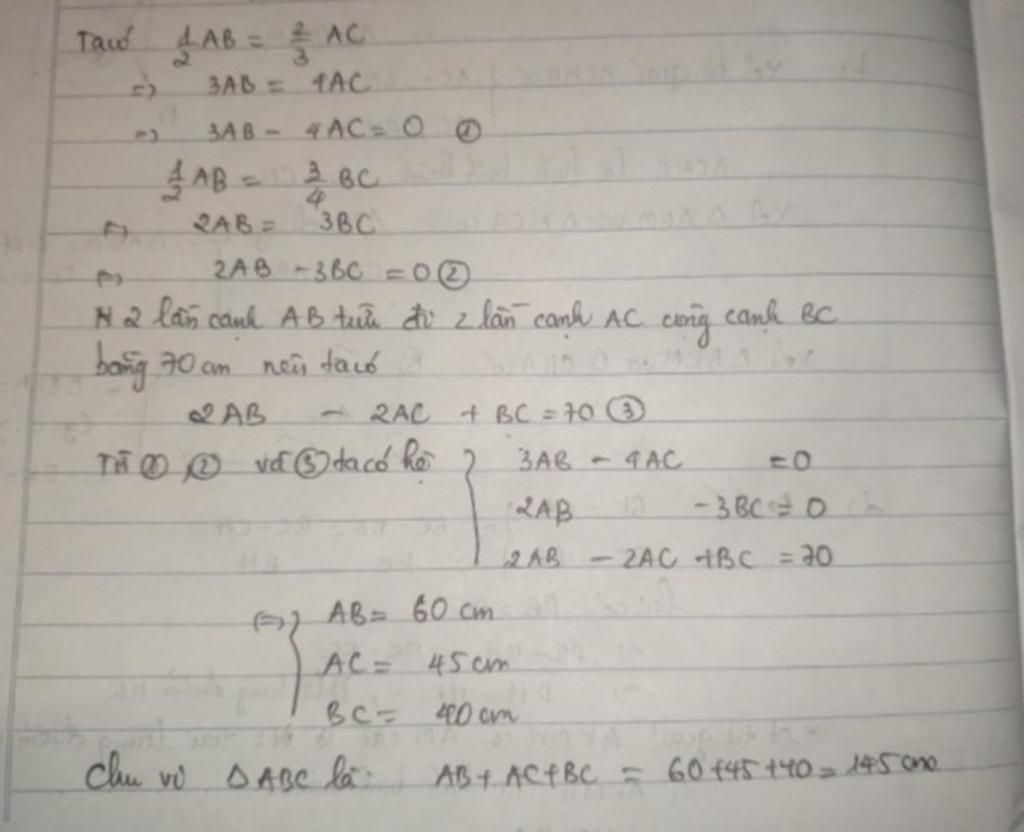 Ta có 1/2 AB = 2/3 AC
=> 3AB = 4AC
=> 3AB - 4AC = 0 ①
1/2 AB = 3/4 BC
<=> 2AB = 3BC
<=> 2AB - 3BC = 0 ②
2 lần cạnh AB trừ đi 2 lần cạnh AC cộng cạnh BC
bằng 70 cm nên ta có
2AB - 2AC + BC = 70 ③
Từ ①, ② và ③ ta có hệ { 3AB - 4AC = 0
2AB - 3BC = 0
2AB - 2AC + BC = 70
<=> { AB = 60 cm
AC = 45 cm
BC = 40 cm
Chu vi ΔABC là: AB + AC + BC = 60 + 45 + 40 = 145 cm